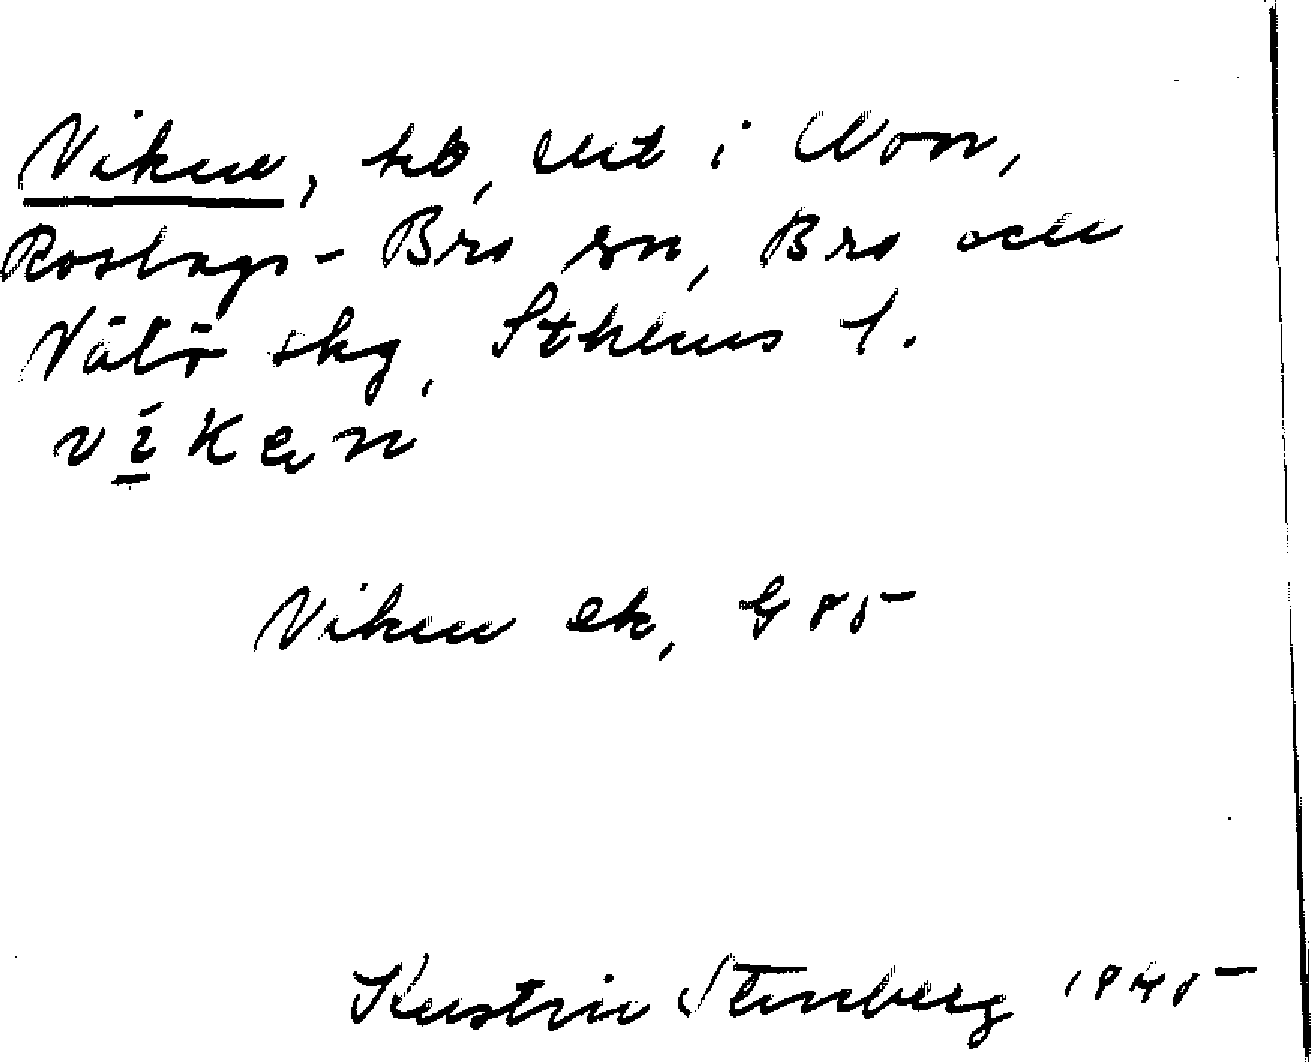 Viken, hb, ut i Won,
Roslags-Bro sn, Bro och
Vätö skg, Sthlms l.
viken
Viken ek, G 85
Kerstin Stenberg 1945